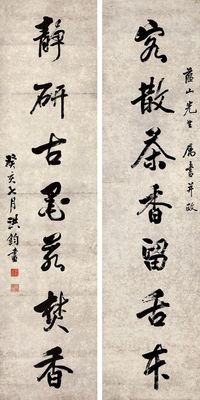 蔭山先生 属書并政
客散茶香留舌本
靜研古墨若焚香
癸亥七月洪鈞書